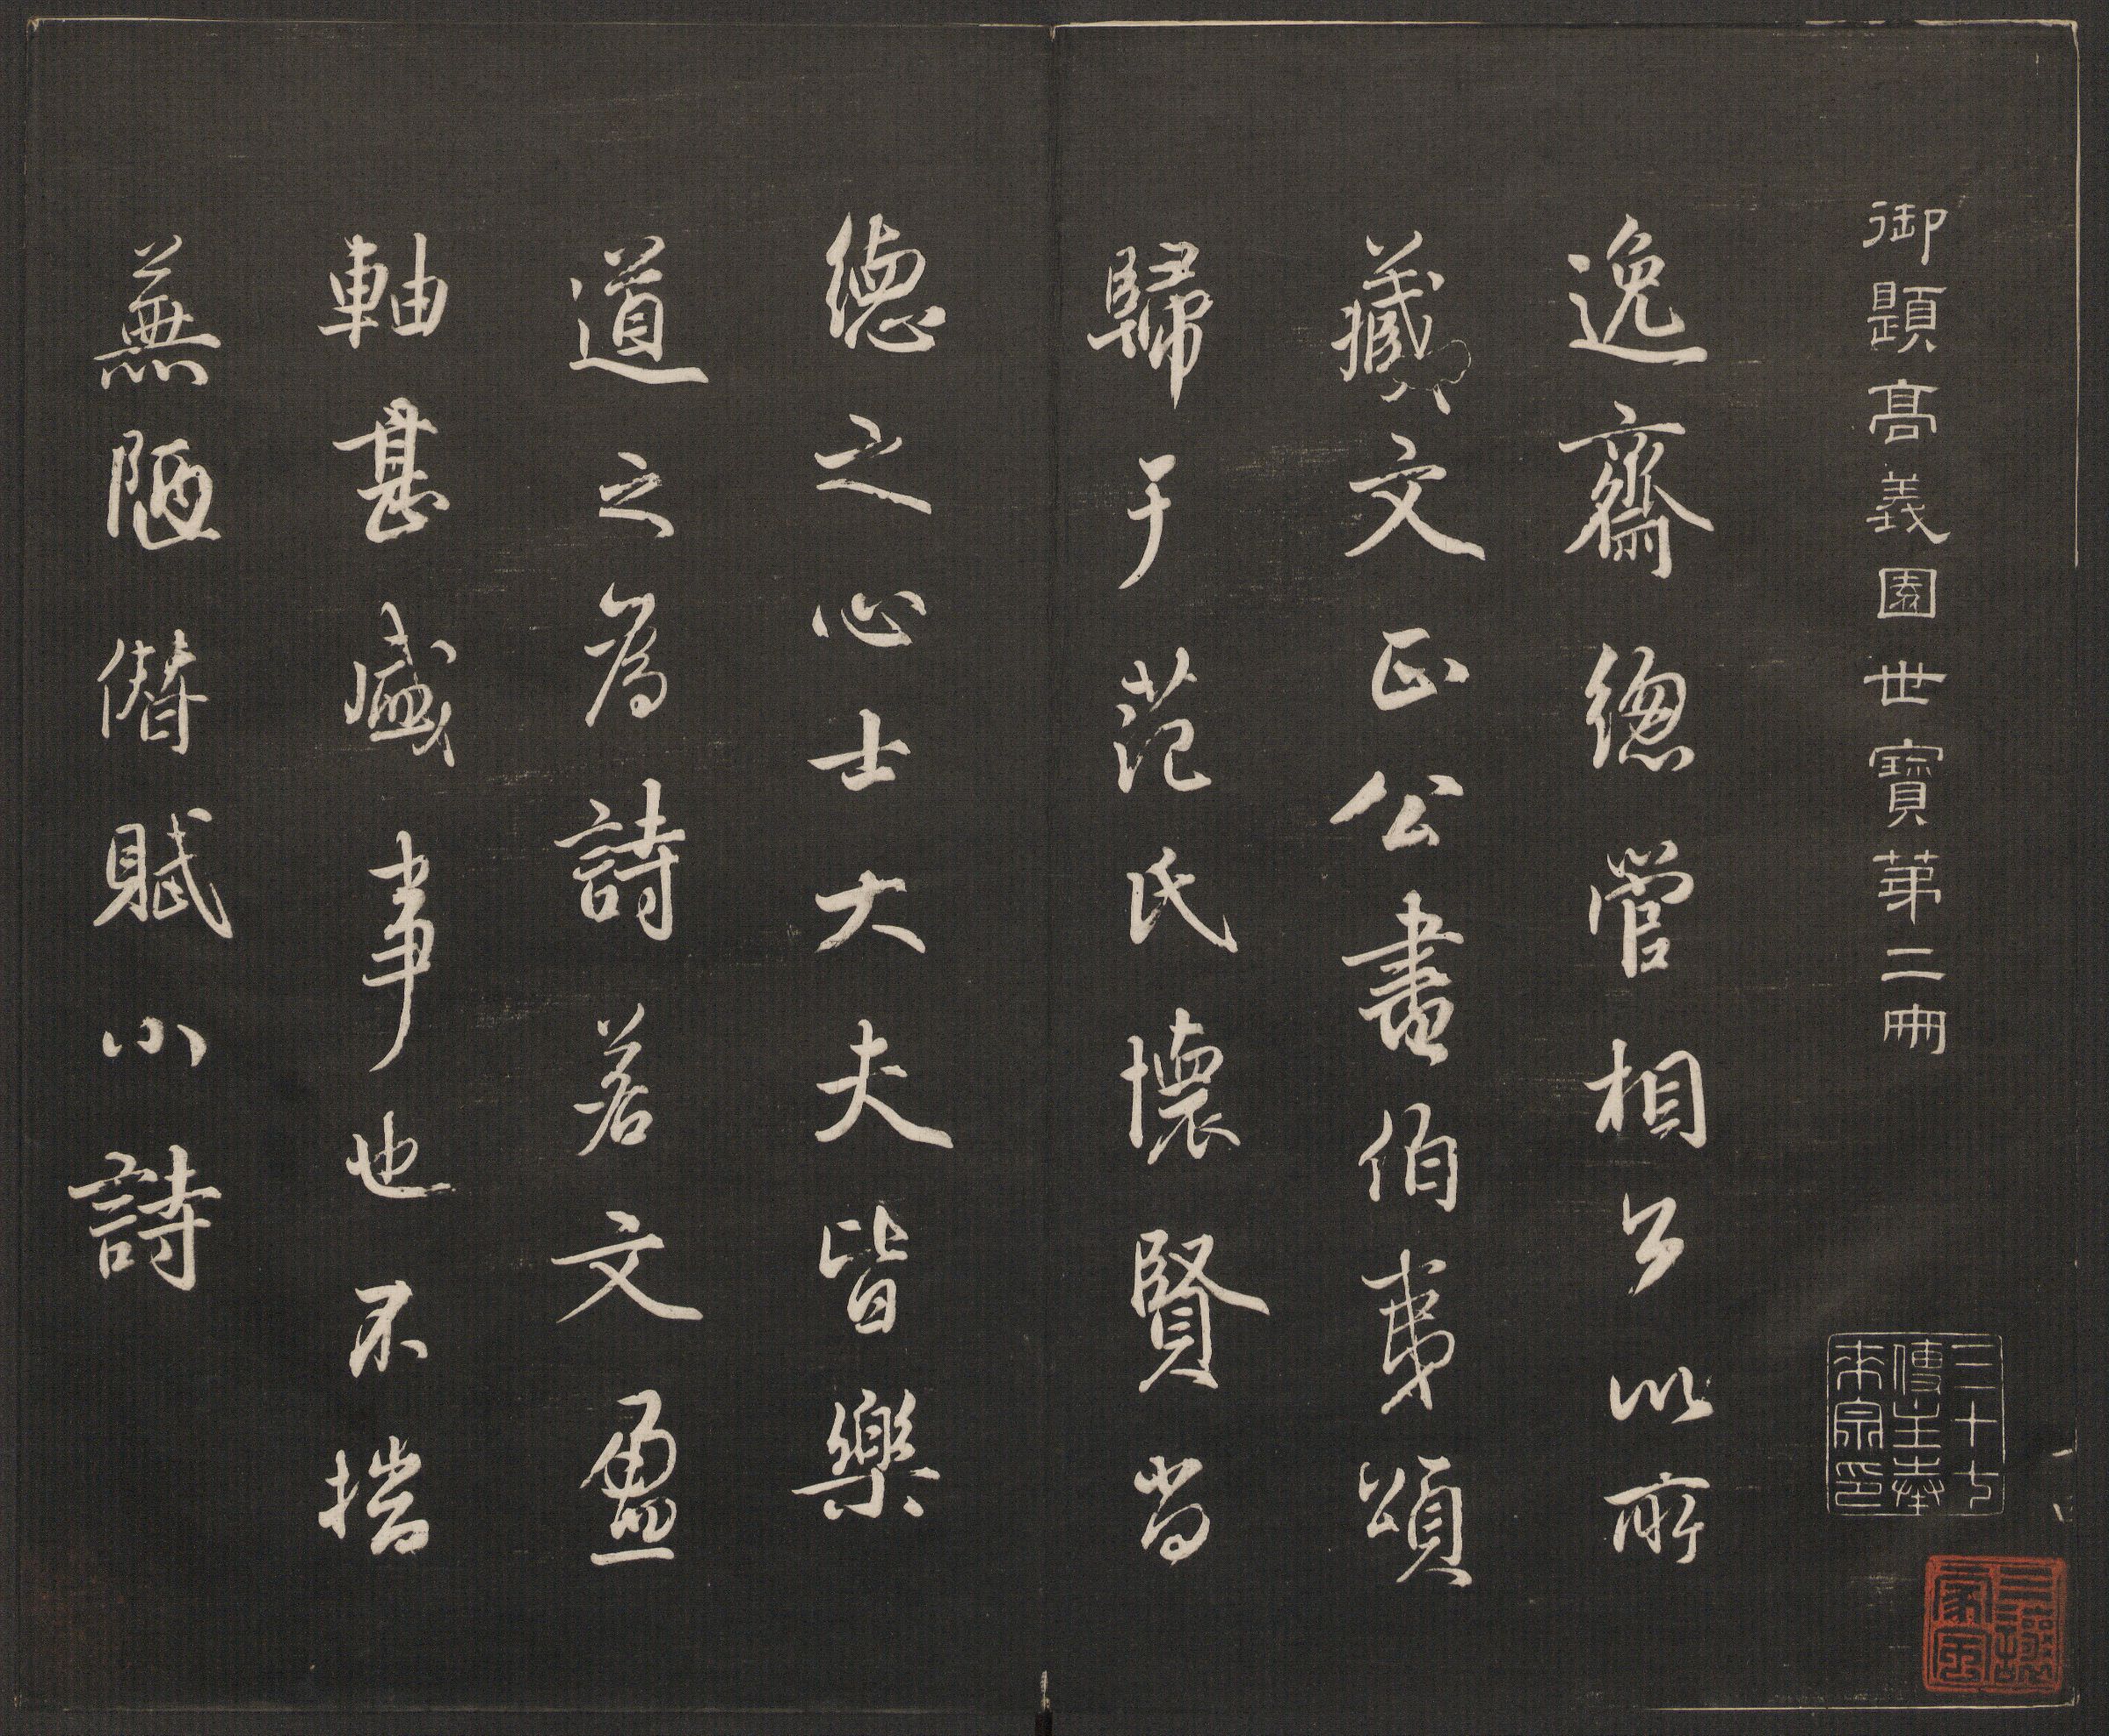 御題高義園世寶第二冊
逸齋總管相公以所
藏文正公書伯夷頌
歸于范氏懷賢尚
德之心士大夫皆樂
道之為詩若文盈
軸甚盛事也不揣
蕪陋僭賦小詩
三十七
傳主奉
来宗印